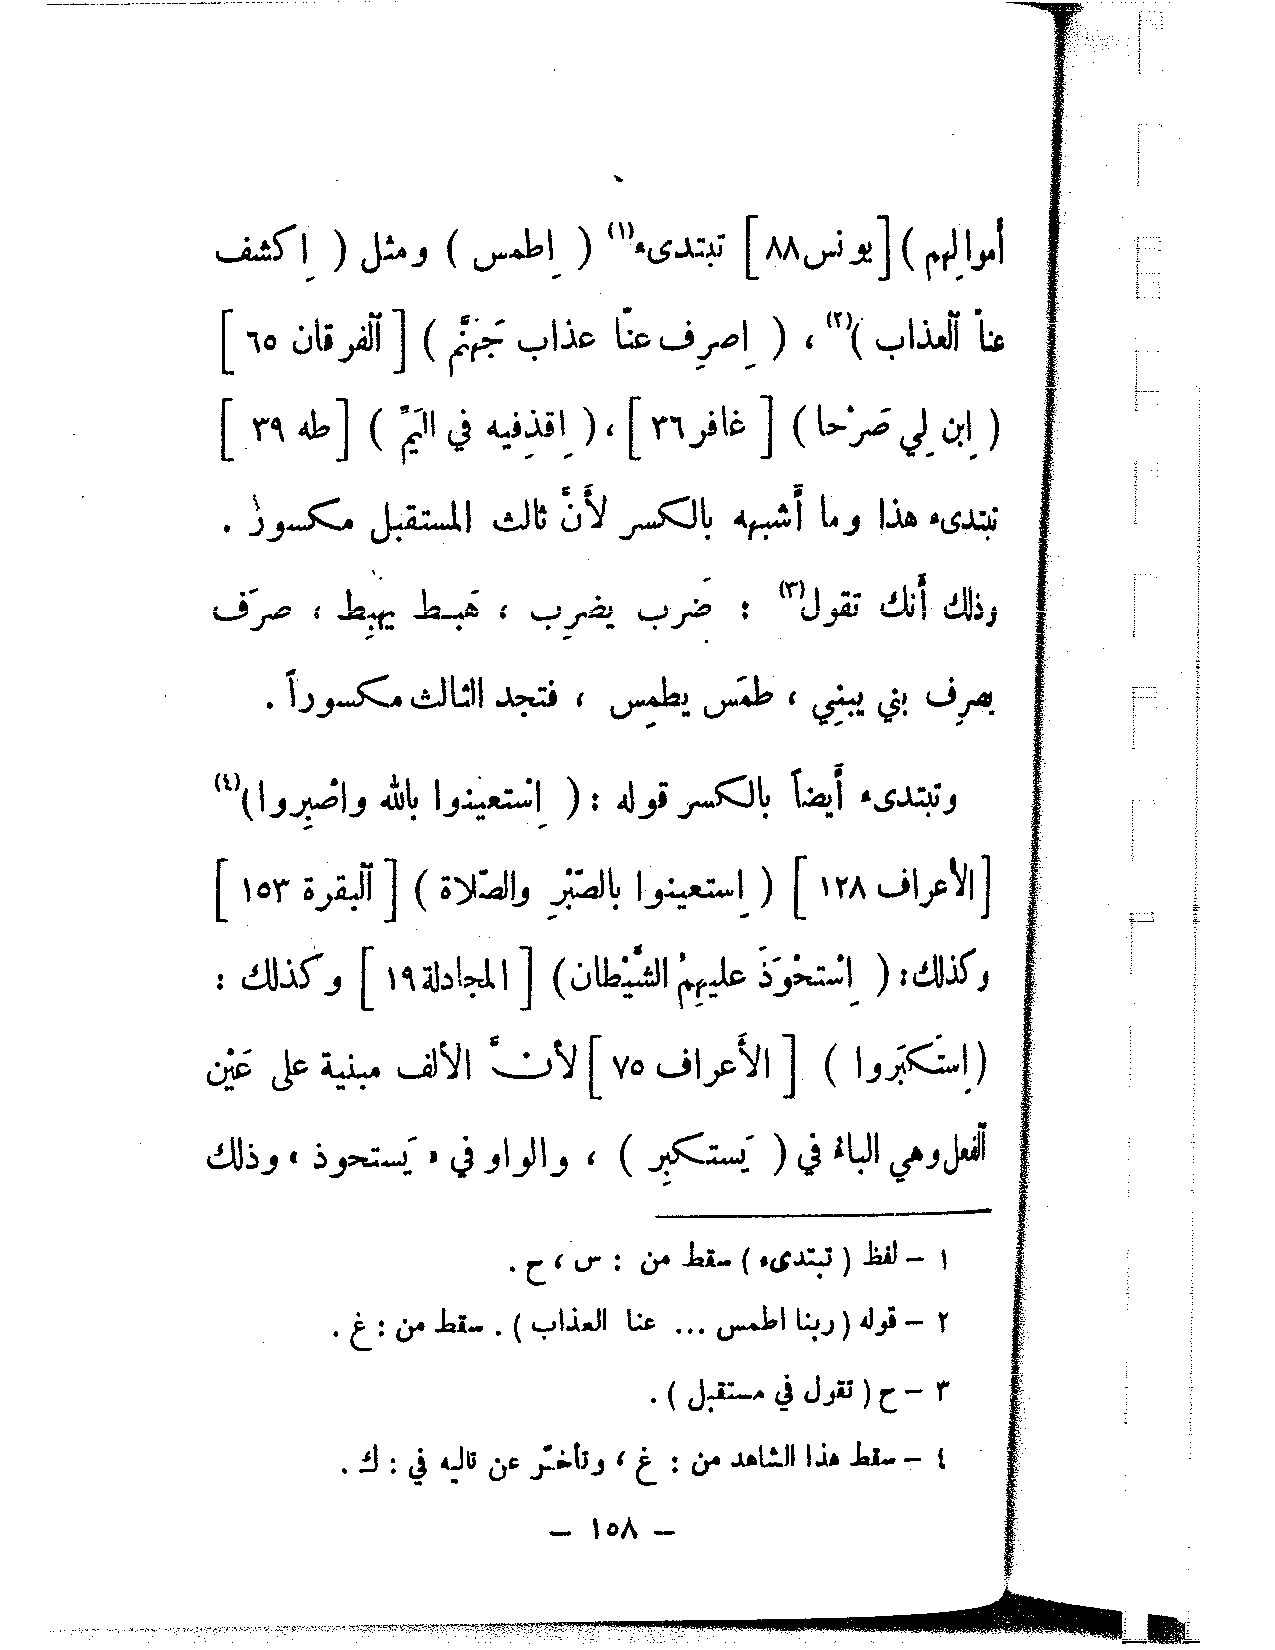 أموالِهم ) [ يونس ٨٨ ] تبتدىء(١) ( اِطمس ) ومثل ( اِكشف
عناً اَلعذاب )(٢) ، ( اِصرِف عنّا عذاب جَهنَّم ) [ اَلفرقان ٦٥ ]
( اِبن لِي صَرْحا ) [ غافر ٣٦ ] ، ( اِقذِفيه في اليَمِّ ) [ طه ٣٩ ]
تبتدىء هذا وما أَشبهه بالكسر لأَنَّ ثالث المستقبل مكسورٌ .
وذلك أَنك تقول(٣) : ضَرب يضرِب ، هَبط يهبِط ، صرَف
يصرِف بني يبنِي ، طمَس يطمِس ، فتجد الثالث مكسوراً .
وتبتدىء أَيضاً بالكسر قوله : ( اِسْتعينوا بالله واصْبِروا )(٤)
[ الأعراف ١٢٨ ] ( اِستعينوا بالصّبْرِ والصّلاة ) [ اَلبقرة ١٥٣ ]
وكذلك : ( اِسْتحْوَذَ عليهِمُ الشَّيْطان ) [ المجادلة ١٩ ] وكذلك :
( اِستَكبَروا ) [ الأَعراف ٧٥ ] لأنَّ الألف مبنية على عَيْن
اَلفعل وهي الباءُ في ( يَستكبِر ) ، والواو في « يَستحوذ » وذلك
١ – لفظ ( تبتدىء ) سقط من : س ، ح .
٢ – قوله ( ربنا اطمس ... عنا العذاب ) . سقط من : غ .
٣ – ح ( تقول في مستقبل ) .
٤ – سقط هذا الشاهد من : غ ، وتأخّر عن تاليه في : ك .
– ١٥٨ –